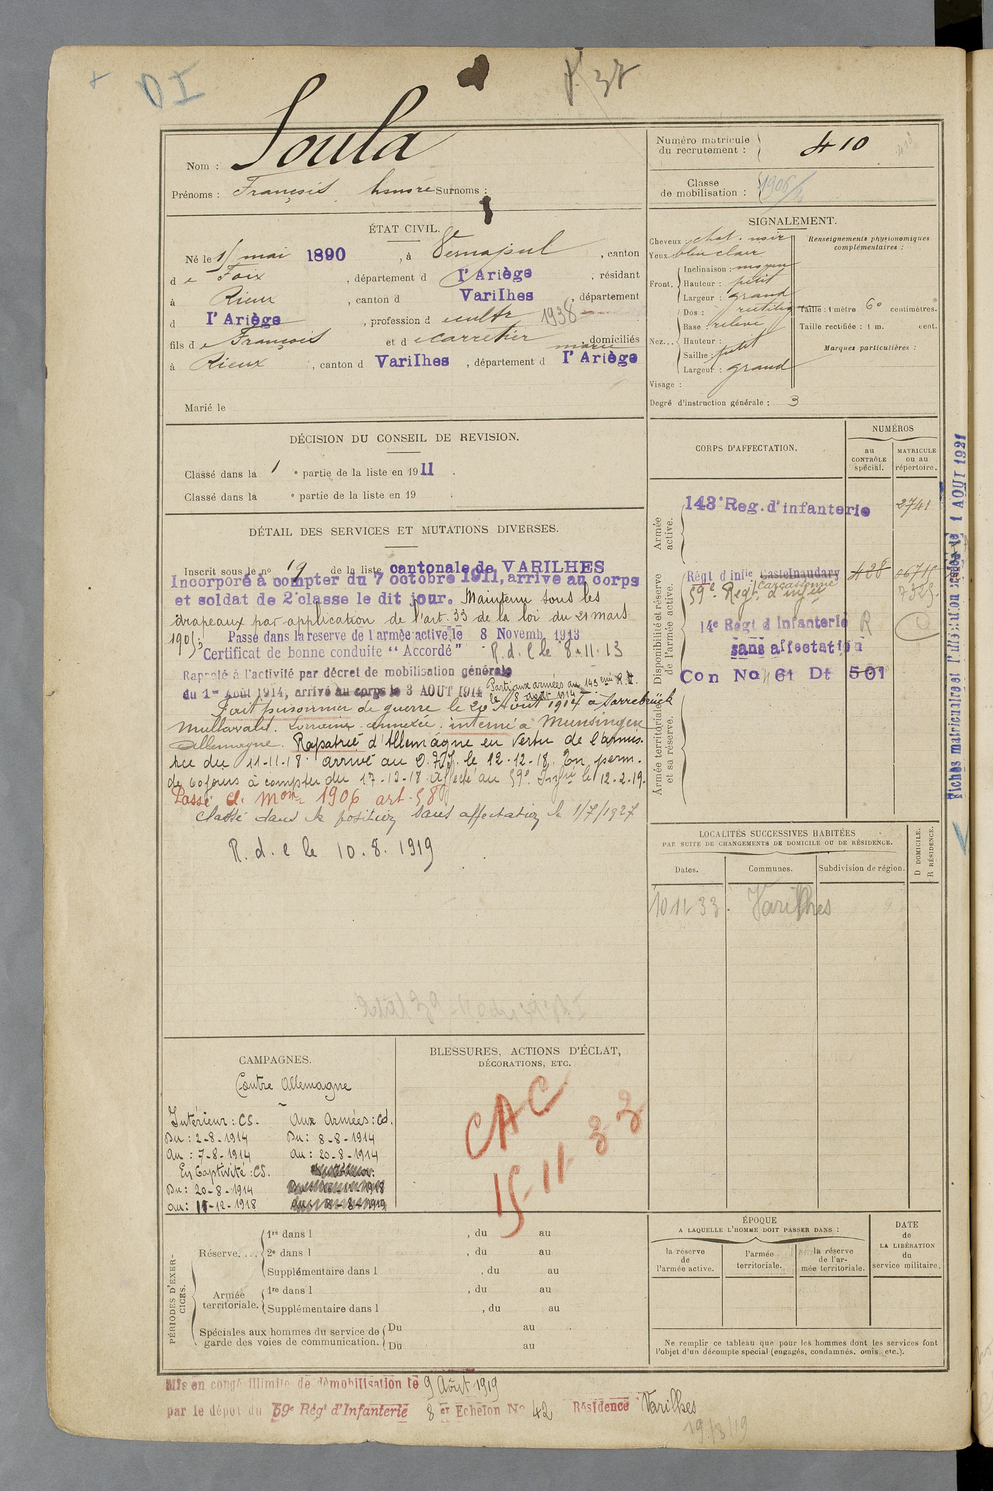 DI
Nom : Soula
Prénoms : François honoré Surnoms :
Numéro matricule du recrutement : 410
Classe de mobilisation : 1906
ÉTAT CIVIL.
Né le 15 mai 1890, à Vernajoul, canton
de Foix, département d l'Ariège, résidant
à Rieux, canton d Varilhes, département
d l'Ariège, profession d cultr 1938
fils de François et de Carretier marie domiciliés
à Rieux, canton d Varilhes, département d l'Ariège
Marié le
SIGNALEMENT.
Cheveux chat. noir
Yeux bleu clair
Front. Inclinaison : moyen
Hauteur : petit
Largeur : grand
Nez... Dos : rectiligne
Base relevé
Hauteur :
Saillie : petit
Largeur : grand
Visage :
Degré d'instruction générale : 3
Renseignements physionomiques complémentaires :
Taille : 1 mètre 60 centimètres.
Taille rectifiée : 1 m. cent.
Marques particulières :
DÉCISION DU CONSEIL DE REVISION.
Classé dans la 1 e partie de la liste en 1911.
Classé dans la e partie de la liste en 19 .
DÉTAIL DES SERVICES ET MUTATIONS DIVERSES.
Inscrit sous le no 19 de la liste cantonale de VARILHES
Incorporé à compter du 7 octobre 1911, arrivé au corps
et soldat de 2e classe le dit jour. Maintenu sous les
drapeaux par application de l'art. 33 de la loi du 21 mars
1905;
Passé dans la réserve de l'armée active le 8 Novemb. 1913
Certificat de bonne conduite "Accordé" R. d. C le 8-11-13
Rappelé à l'activité par décret de mobilisation générale
du 1er Août 1914, arrivé au corps le 3 AOUT 1914 Parti aux armées au 143eme R.I.
le 8 août 1914
Fait prisonnier de guerre le 20 Août 1914 à Sarrebrück
Lorraine annexée. interné à Munsingen
Allemagne. Rapatrié d'Allemagne en vertu de l'armis-
tice du 11-11-18. arrivé au D. le 12-12-18. En perm.
de 60 jours à compter du 17-12-18 affecté au 59e Infie le 12-2-19.
Passé Cl. Mom 1906 art. 58
Classé dans la position Sans affectation le 1/7/1927
R. d. C le 10. 8. 1919
CORPS D'AFFECTATION.
NUMÉROS
au CONTRÔLE spécial.
MATRICULE ou au répertoire.
Armée active.
143e Reg. d'infanterie 2741
Disponibilité et réserve de l'armée active.
Régt d'infie Castelnaudary
Carcassonne
59e Regt d'infie
14e Regt d Infanterie R
sans affectation
Con No 61 Dt 501
Armée territoriale et sa réserve.
Fiches matricules et l'utilisation créée le 1 AOUT 1921
LOCALITÉS SUCCESSIVES HABITÉES
PAR SUITE DE CHANGEMENTS DE DOMICILE OU DE RÉSIDENCE.
Dates. Communes. Subdivision de région.
D DOMICILE.
R RÉSIDENCE.
10 11 33. Varilhes
CAMPAGNES.
Contre Allemagne
Intérieur : CS. Aux Armées : Cd.
Du : 2-8-1914 Du : 8-8-1914
Au : 7-8-1914 Au : 20-8-1914
En Captivité : CS.
Du : 20-8-1914
Au : 11-12-1918
BLESSURES, ACTIONS D'ÉCLAT,
DÉCORATIONS, ETC.
CAC
15-11-33
PÉRIODES D'EXERCICES.
Réserve.... 1re dans l , du au
2e dans l , du au
Supplémentaire dans l , du au
Armée territoriale. 1re dans l , du au
Supplémentaire dans l , du au
Spéciales aux hommes du service de garde des voies de communication. Du au
Du au
ÉPOQUE
A LAQUELLE L'HOMME DOIT PASSER DANS :
la réserve de l'armée active.
l'armée territoriale.
la réserve de l'armée territoriale.
DATE de LA LIBÉRATION du service militaire.
Ne remplir ce tableau que pour les hommes dont les services font
l'objet d'un décompte spécial (engagés, condamnés, omis, etc.).
Mis en congé illimité de démobilisation le 9 Août 1919
par le dépôt du 59e Régt d'Infanterie 8 er Echelon No 42 Résidence Varilhes
19/8/19